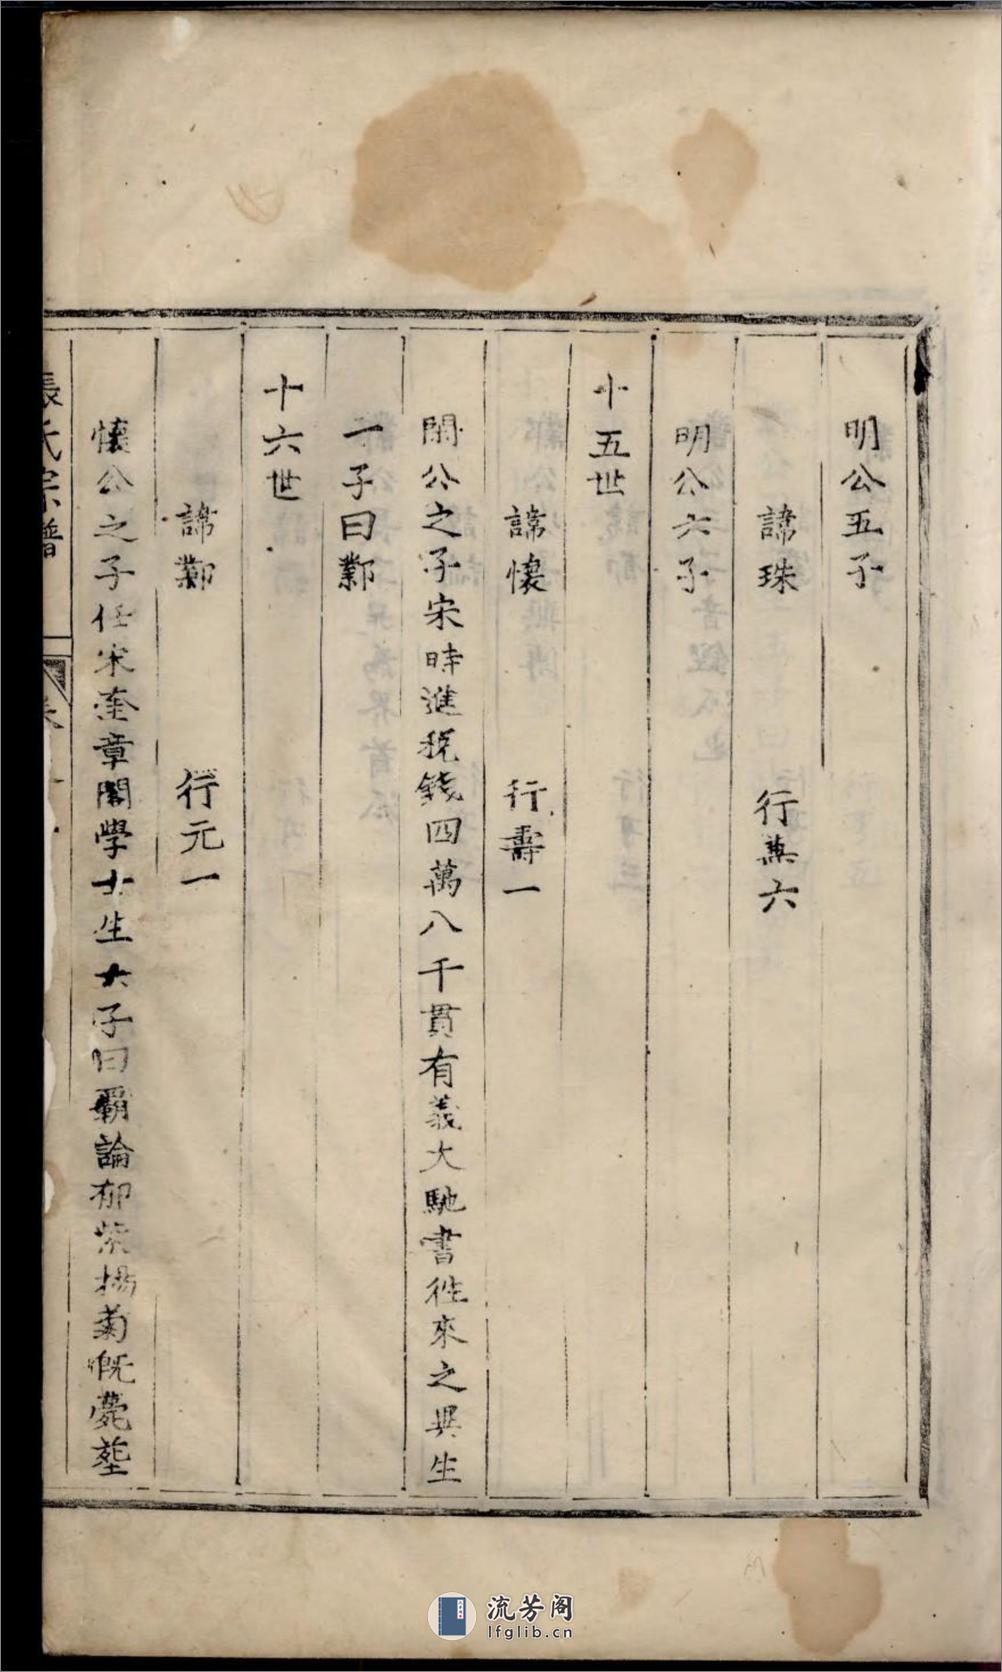 明公五子
諱珠 行萬六
明公六子
十五世
諱懷 行壽一
閑公之子宋時進稅錢四萬八千貫有義大馳書徃來之異生
一子曰鄴
十六世
諱鄴 行元一
懷公之子任宋奎章閣學士生六子曰霸論郁紫揚菊既薨塟
張氏宗譜
流芳阁
lfglib.cn